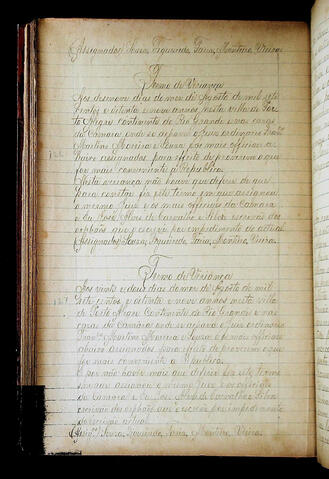 (Assignados) Souza, Figueiredo, Faria, Monteiro, Vieira.
Termo de Vereança
Aos desenove dias do mes de Agosto de mil sete
centos e oitenta e nove annos, nesta villa de Por-
to Alegre Continente do Rio Grande e nas casas
da Camara, onde se achava o Juiz ordinario
Martins Moreira e Souza e os mais officiaes a-
baixo assignados, para effeito de proverem o que
for mais conveniente a Republica.
Nesta vereança não houve que deferir do que
Para constar fiz este termo em que assignou
o mesmo Juiz e os mais officiaes da Camara
e Eu José Alves de Carvalho e Silva escrivão dos
orphãos que o escrevi por impedimento do actual
(Assignados) Souza, Figueiredo, Faria, Monteiro, Vieira.
Termo de Vereança
Aos vinte e dous dias do mes de Agosto de mil
sete centos e oitenta e nove annos nesta villa
de Porto Alegre Continente do Rio Grande e nas
casas da Camara onde se achava o Juiz ordinario
Martins Moreira e Souza e os mais officiaes
abaixo assignados para effeito de proverem o que
for mais conveniente a Republica
E por não haver mais que deferir fiz este termo
em que assignou o mesmo Juiz e os officiaes
da Camara e Eu José Alves de Carvalho e Silva
escrivão dos orphãos que o escrevi por impedimento
do escrivão actual.
Souza, Figueiredo, Faria, Monteiro, Vieira.